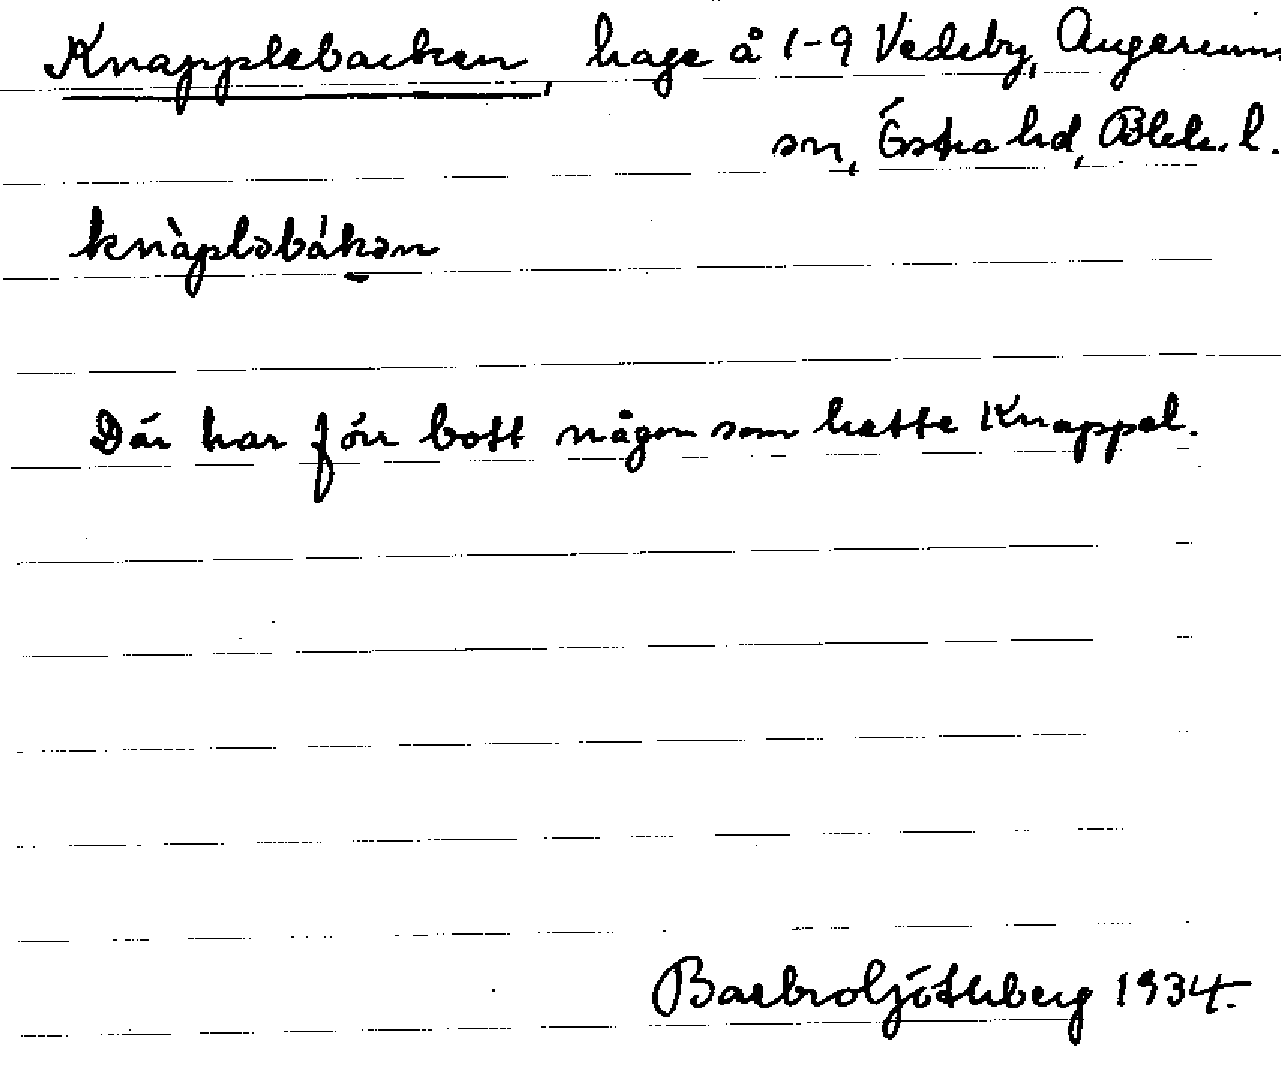 Knapplebacken, hage å 1-9 Vedeby, Augerums
sn, Östra hd, Blek. l.
knàpləbákən
Där har förr bott någon som hette Knappel.
Barbro Götherberg 1934.